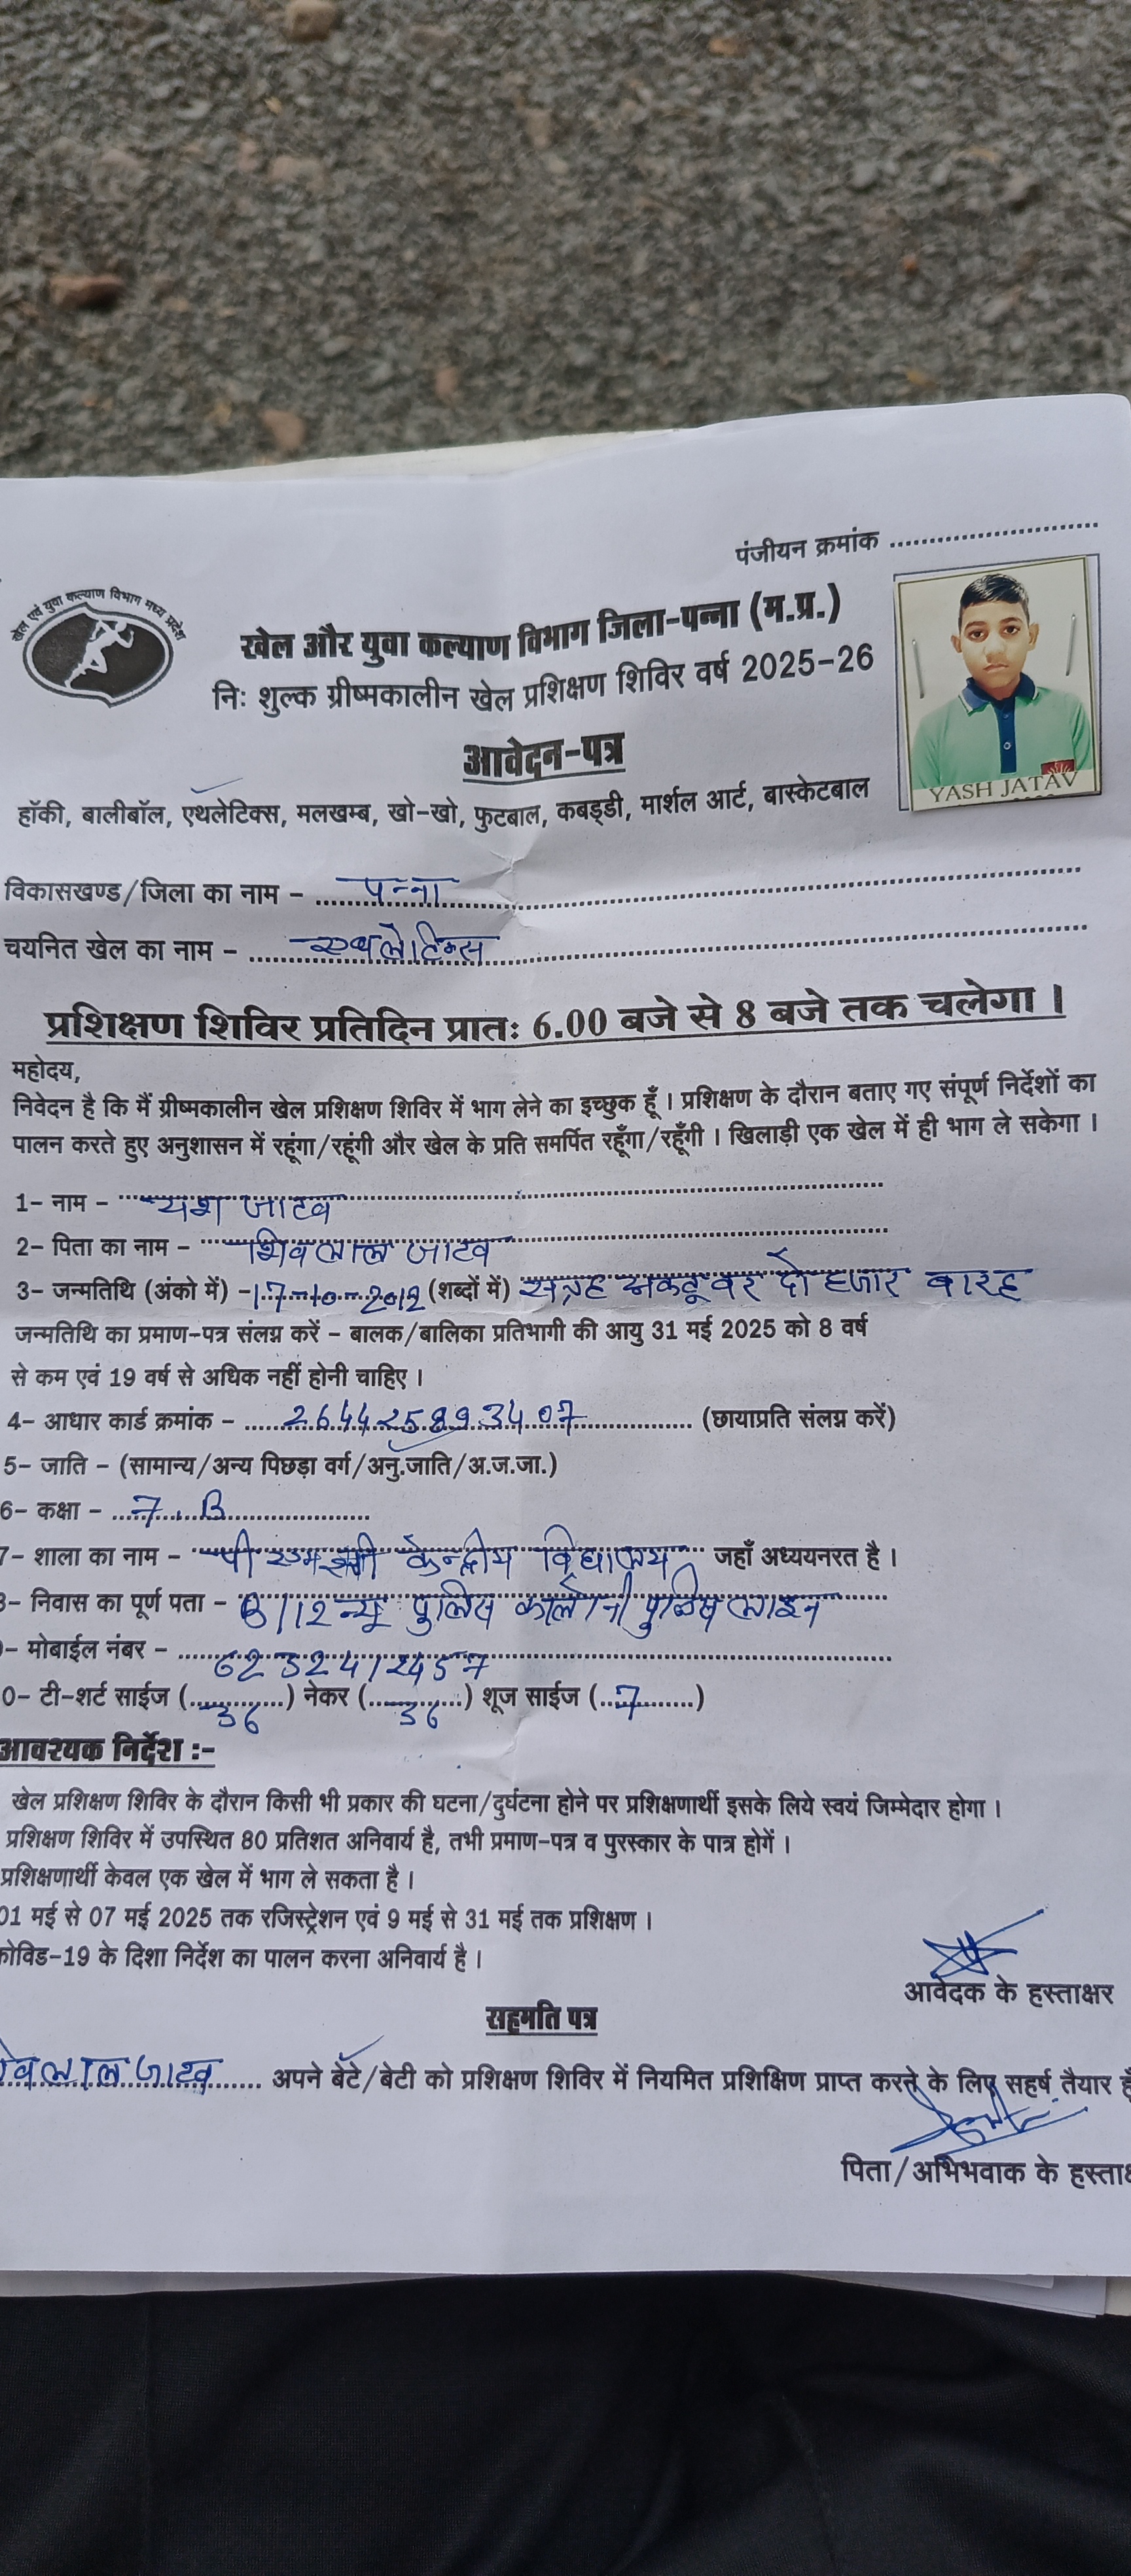 पंजीयन क्रमांक ..............................
खेल एवं युवा कल्याण विभाग मध्य प्रदेश
खेल और युवा कल्याण विभाग जिला-पन्ना (म.प्र.)
निः शुल्क ग्रीष्मकालीन खेल प्रशिक्षण शिविर वर्ष 2025-26
YASH JATAV
आवेदन-पत्र
हॉकी, बालीबॉल, एथलेटिक्स, मलखम्ब, खो-खो, फुटबाल, कबड्डी, मार्शल आर्ट, बास्केटबाल
विकासखण्ड/जिला का नाम - पन्ना
चयनित खेल का नाम - एथलेटिक्स
प्रशिक्षण शिविर प्रतिदिन प्रातः 6.00 बजे से 8 बजे तक चलेगा ।
महोदय,
निवेदन है कि मैं ग्रीष्मकालीन खेल प्रशिक्षण शिविर में भाग लेने का इच्छुक हूँ । प्रशिक्षण के दौरान बताए गए संपूर्ण निर्देशों का
पालन करते हुए अनुशासन में रहूंगा/रहूंगी और खेल के प्रति समर्पित रहूँगा/रहूँगी । खिलाड़ी एक खेल में ही भाग ले सकेगा ।
1- नाम - यश जाटव
2- पिता का नाम - शिवलाल जाटव
3- जन्मतिथि (अंको में) - 17-10-2012 (शब्दों में) सत्रह अकटूवर दो हजार बारह
जन्मतिथि का प्रमाण-पत्र संलग्न करें - बालक/बालिका प्रतिभागी की आयु 31 मई 2025 को 8 वर्ष
से कम एवं 19 वर्ष से अधिक नहीं होनी चाहिए ।
4- आधार कार्ड क्रमांक - 264425893407 (छायाप्रति संलग्न करें)
5- जाति - (सामान्य/अन्य पिछड़ा वर्ग/अनु.जाति/अ.ज.जा.)
6- कक्षा - 7. B
7- शाला का नाम - पी एम श्री केन्द्रीय विद्यालय जहाँ अध्ययनरत है ।
- निवास का पूर्ण पता - B/12 न्यू पुलिस कालोनी पुलिस लाइन
- मोबाईल नंबर - 6232412457
0- टी-शर्ट साईज (36) नेकर (36) शूज साईज (7)
आवश्यक निर्देश :-
खेल प्रशिक्षण शिविर के दौरान किसी भी प्रकार की घटना/दुर्घटना होने पर प्रशिक्षणार्थी इसके लिये स्वयं जिम्मेदार होगा ।
प्रशिक्षण शिविर में उपस्थित 80 प्रतिशत अनिवार्य है, तभी प्रमाण-पत्र व पुरस्कार के पात्र होगें ।
प्रशिक्षणार्थी केवल एक खेल में भाग ले सकता है ।
01 मई से 07 मई 2025 तक रजिस्ट्रेशन एवं 9 मई से 31 मई तक प्रशिक्षण ।
कोविड-19 के दिशा निर्देश का पालन करना अनिवार्य है ।
आवेदक के हस्ताक्षर
सहमति पत्र
वलाल जाटव अपने बेटे/बेटी को प्रशिक्षण शिविर में नियमित प्रशिक्षिण प्राप्त करने के लिए सहर्ष तैयार हूँ
पिता/अभिभवाक के हस्ताक्ष